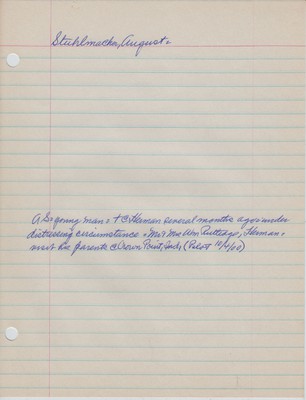 Stuhlmacher, August.
A S. young man. + @ Herman several months ago under
distressing circumstance. Mr & Mrs Wm Ruttage, Herman.
visit his parents @ Crown Point, Ind. (Pilot 10/4/00)